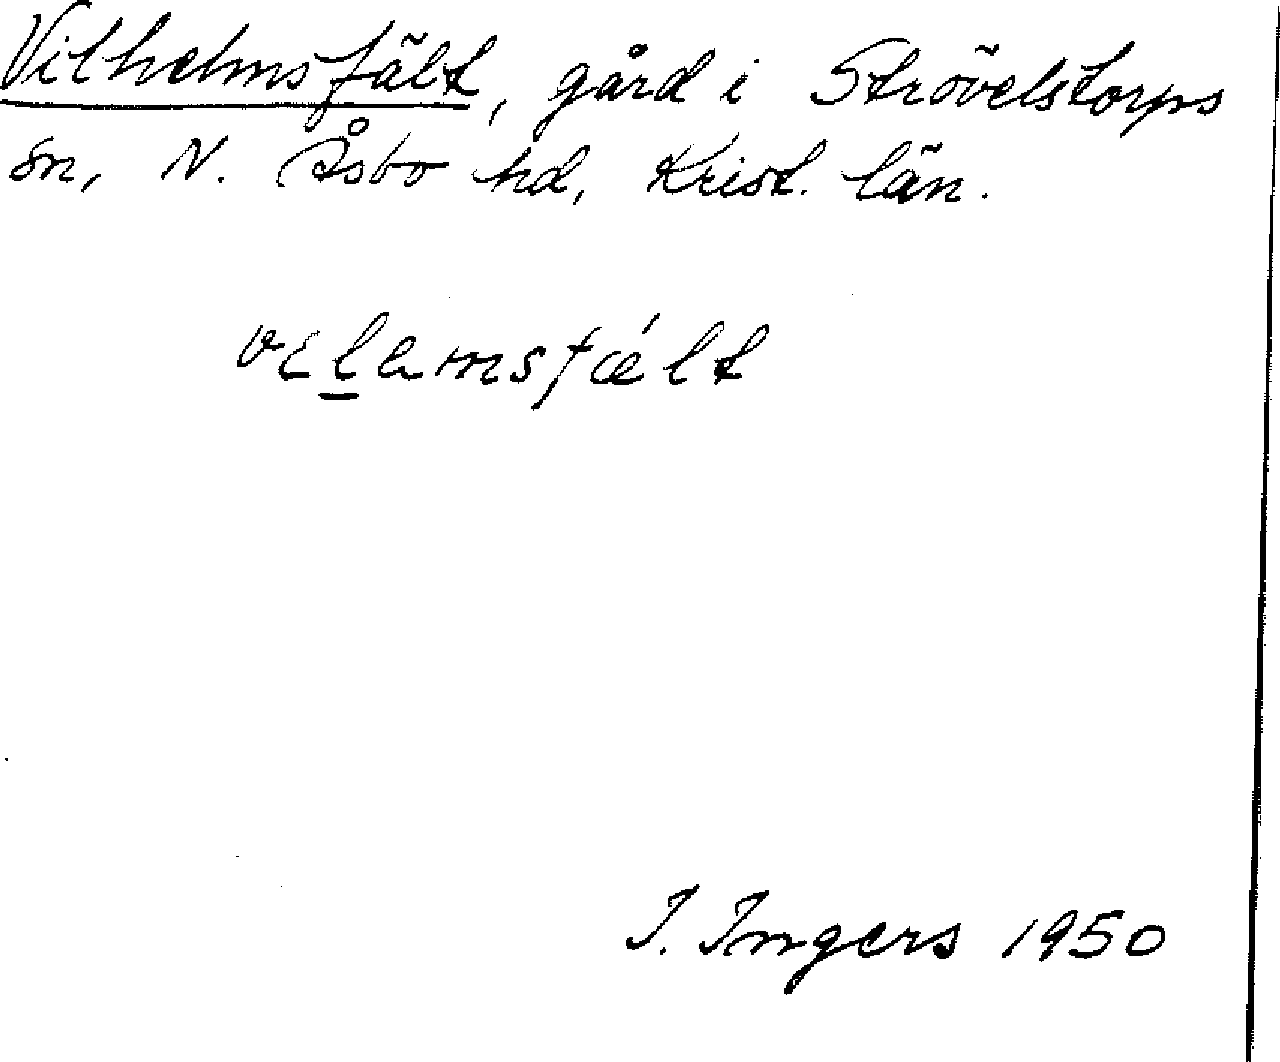 Vilhelmsfält, gård i Strövelstorps
sn, N. Åsbo hd, Krist. län.
vilamsfált
I. Ingers 1950